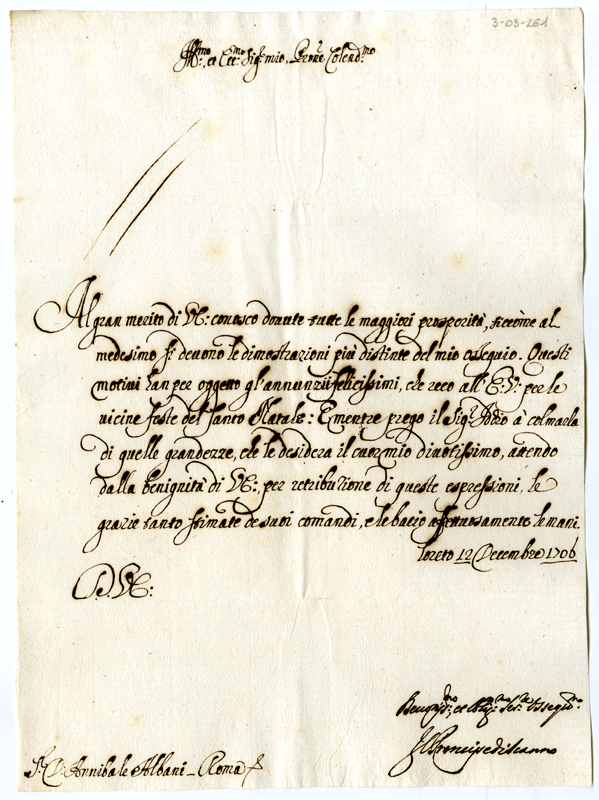 3-03-261
Ill.mo et Ecc.mo Sig.r mio, Prone Colend.mo
Al gran merito di V.E: conosco dovute tutte le maggiori prosperità, siccome al
medesimo si devono le dimostrazioni più distinte del mio ossequio. Questi
motivi han per oggetto gl'annunzij felicissimi, che reco all' E: V: per le
vicine feste del Santo Natale: E mentre prego il Sig.r Iddio à colmarla
di quelle grandezze, che le desidera il cuor mio divotissimo, attendo
dalla benignità di V.E:, per retribuzione di queste espressioni, le
grazie tanto stimate de suoi comandi, e le bacio affettuosamente le mani.
Loreto 12 Decembre 1706
D. V.E:
et Ser.e
Il Principe di
S.r D. Annibale Albani - Roma